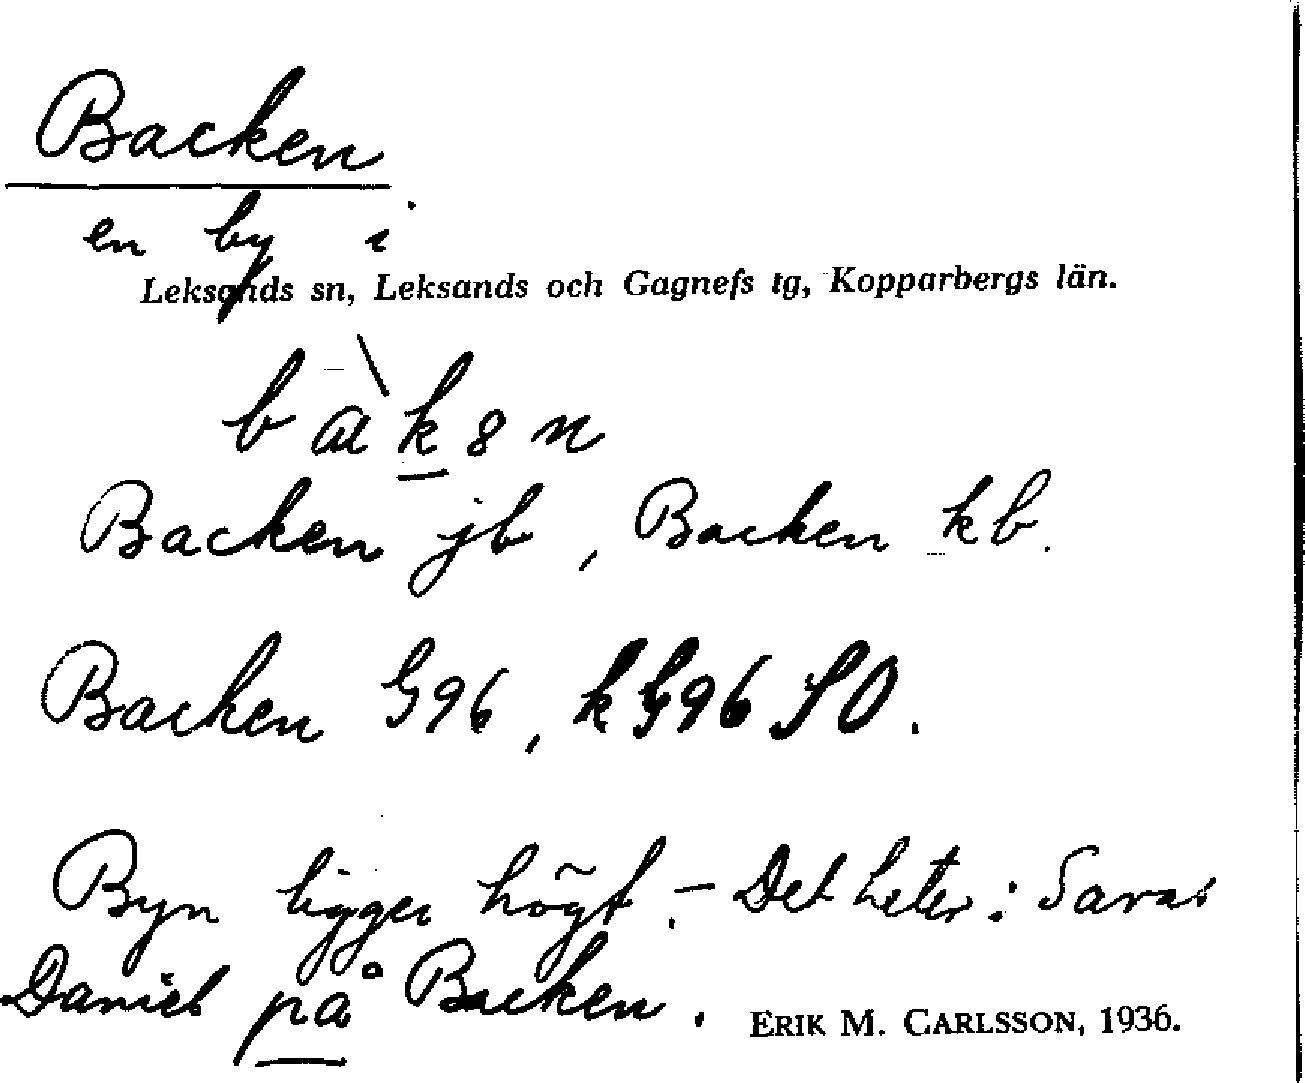 Backen
en by i
Leksands sn, Leksands och Gagnefs tg, Kopparbergs län.
bàkən
Backen jb, Backen kb.
Backen G96, kG96 SO.
Byn ligger högt. – Det heter: Saras
Daniel på Backen.
ERIK M. CARLSSON, 1936.